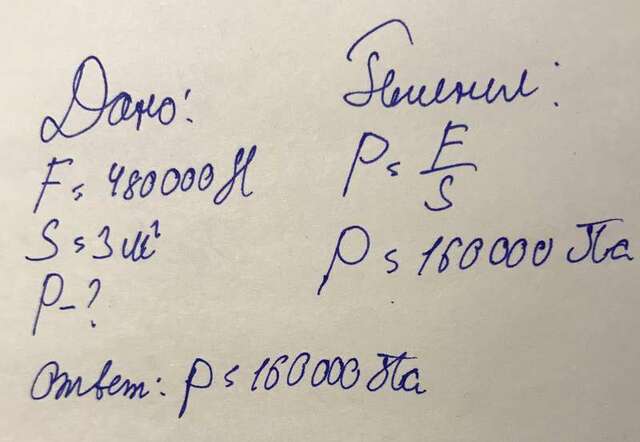 Дано:
F = 480000 Н
S = 3 м²
P - ?
Решение:
P = F/S
P = 160000 Па
Ответ: P = 160000 Па